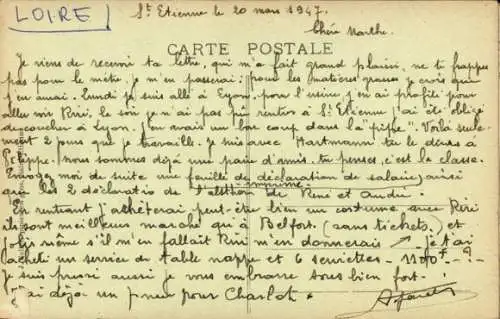 LOIRE
St Etienne le 20 mars 1947.
Chère Marthe.
CARTE POSTALE
Je viens de recevoir ta lettre, qui m'a fait grand plaisir, ne te frappes
pas pour le mètre, je m'en passerai; pour les matières grasses je crois que
j'en aurai. Lundi je suis allé à Lyon, pour l'usine j'en ai profité pour
aller voir Riri, le soir je n'ai pas pu rentrer à St Etienne j'ai été obligé
de coucher à Lyon. J'en avais un bon coup dans la pipe". Voilà seule-
ment 2 jours que je travaille. Je suis avec Hartmann tu le diras à
Philippe. nous sommes déjà une paire d'amis. tu penses, c'est la classe.
Envoye moi de suite une feuille de déclaration de salaire, ainsi
que les 2 déclaratio de l'alsthom de René et André.
En rentrant j'achèterai peut-être bien un costume avec Riri
ils sont meilleurs marché qu'à Belfort (sans tickets) et
jolis même s'il m'en fallait Riri m'en donnerais je t'ai
acheté un service de table nappe et 6 serviettes
Je suis aussi je vous embrasse tous bien fort.
J'ai déjà un pneu pour Charlot